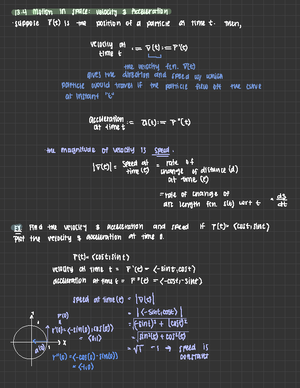 13.4 Motion in Space: Velocity & Acceleration
suppose r(t) is the position of a particle at time t. Then,
velocity at time t := v(t) := r'(t)
the velocity fcn. v(t)
gives the direction and speed w/ which
particle would travel if the particle flew off the curve
at instant "t"
acceleration at time t := a(t) := r"(t)
the magnitude of velocity is speed.
|v(t)| = speed at time (t) = rate of change of distance (d) at time (t)
= rate of change of arc length fcn. s(t) wrt t = ds/dt
Ex Find the velocity & acceleration and speed if r(t) = <cost, sint>
Plot the velocity & acceleration at time 0.
r(t) = <cost, sint>
velocity at time t = r'(t) = <-sint, cost>
acceleration at time t = r"(t) = <-cost, -sint>
speed at time (t) = |v(t)|
= |<-sint, cost>|
= √(-sint)² + (cost)²
= √sin²(t) + cos²(t)
= √1 = 1 → speed is constant
r'(0) = <-sin(0), cos(0)>
= <0,1>
r"(0) = <-cos(0), -sin(0)>
= <-1,0>